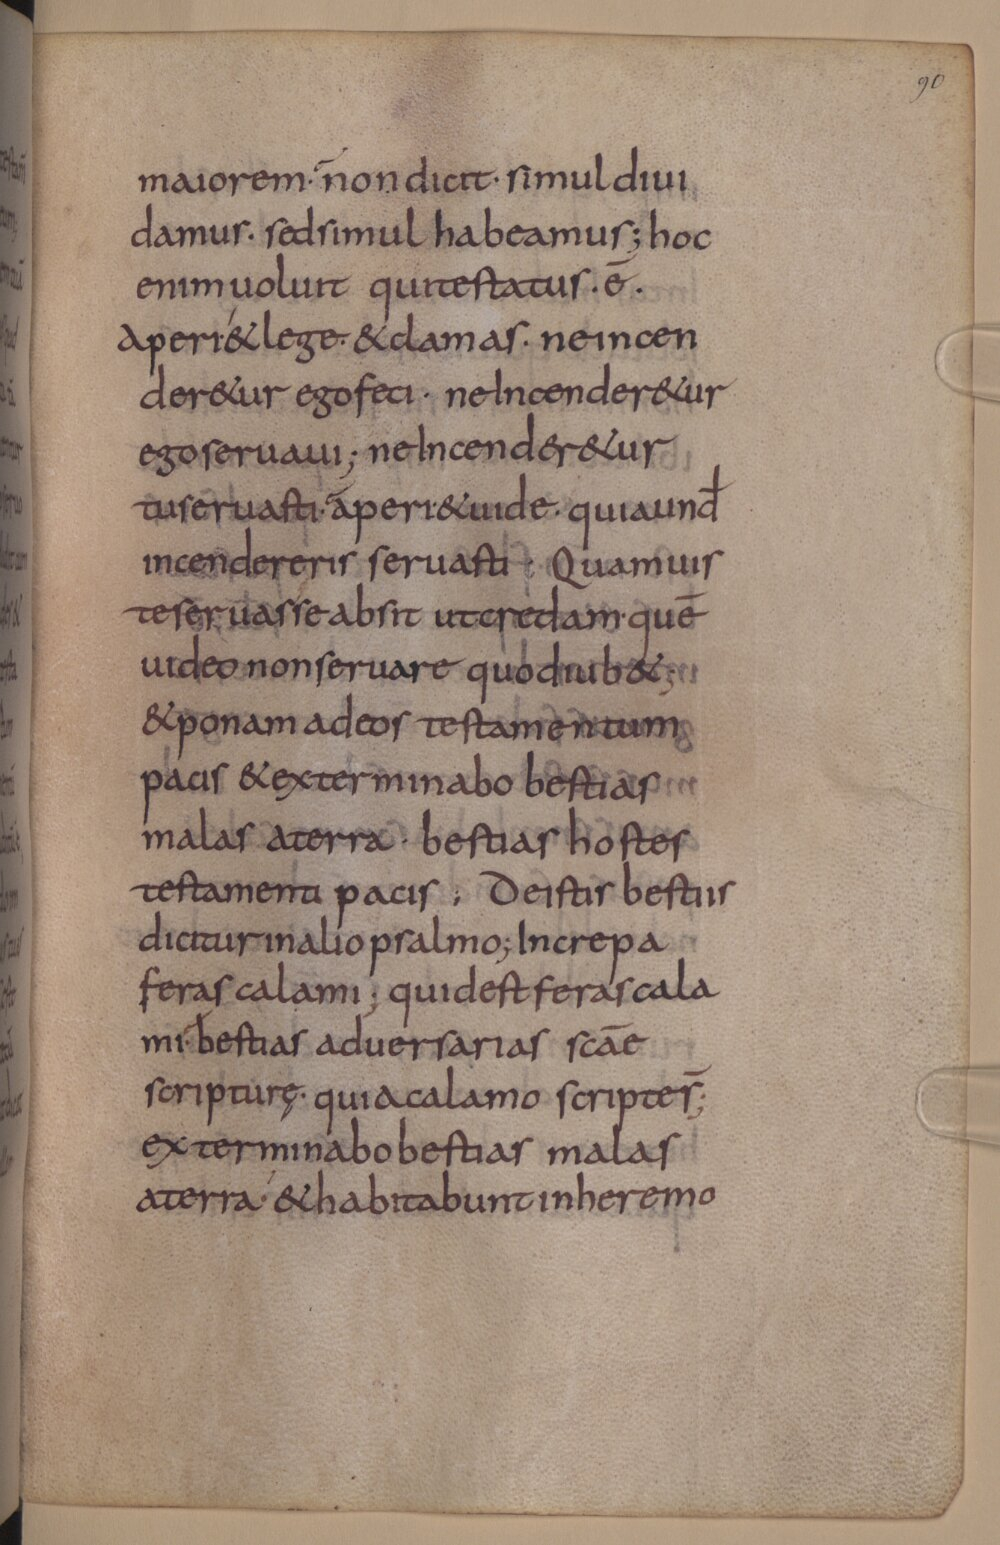 90
maiorem· n̄ on dicit· simul diui
damus· sed simul habeamus; hoc
enim uoluit qui testatus· ē·
Aperi· & lege· & clamas· ne incen
der&ur ego feci· ne Incender&ur
ego seruaui; ne Incender&ur
tu seruasti· aperi· & uide· quia und̄
incendereris seruasti; Quamuis
te seruasse absit ut credam· quē
uideo non seruare quod iub&;
& ponam ad eos testamentum
pacis & exterminabo bestias
malas a terra· bestias hostes
testamenti pacis; De istis bestiis
dicitur in alio psalmo; Increpa
feras calami; quid est feras cala
mi· bestias aduersarias scāe
scripturę· quia calamo script est̄;
exterminabo bestias malas
a terra· & habitabunt in heremo